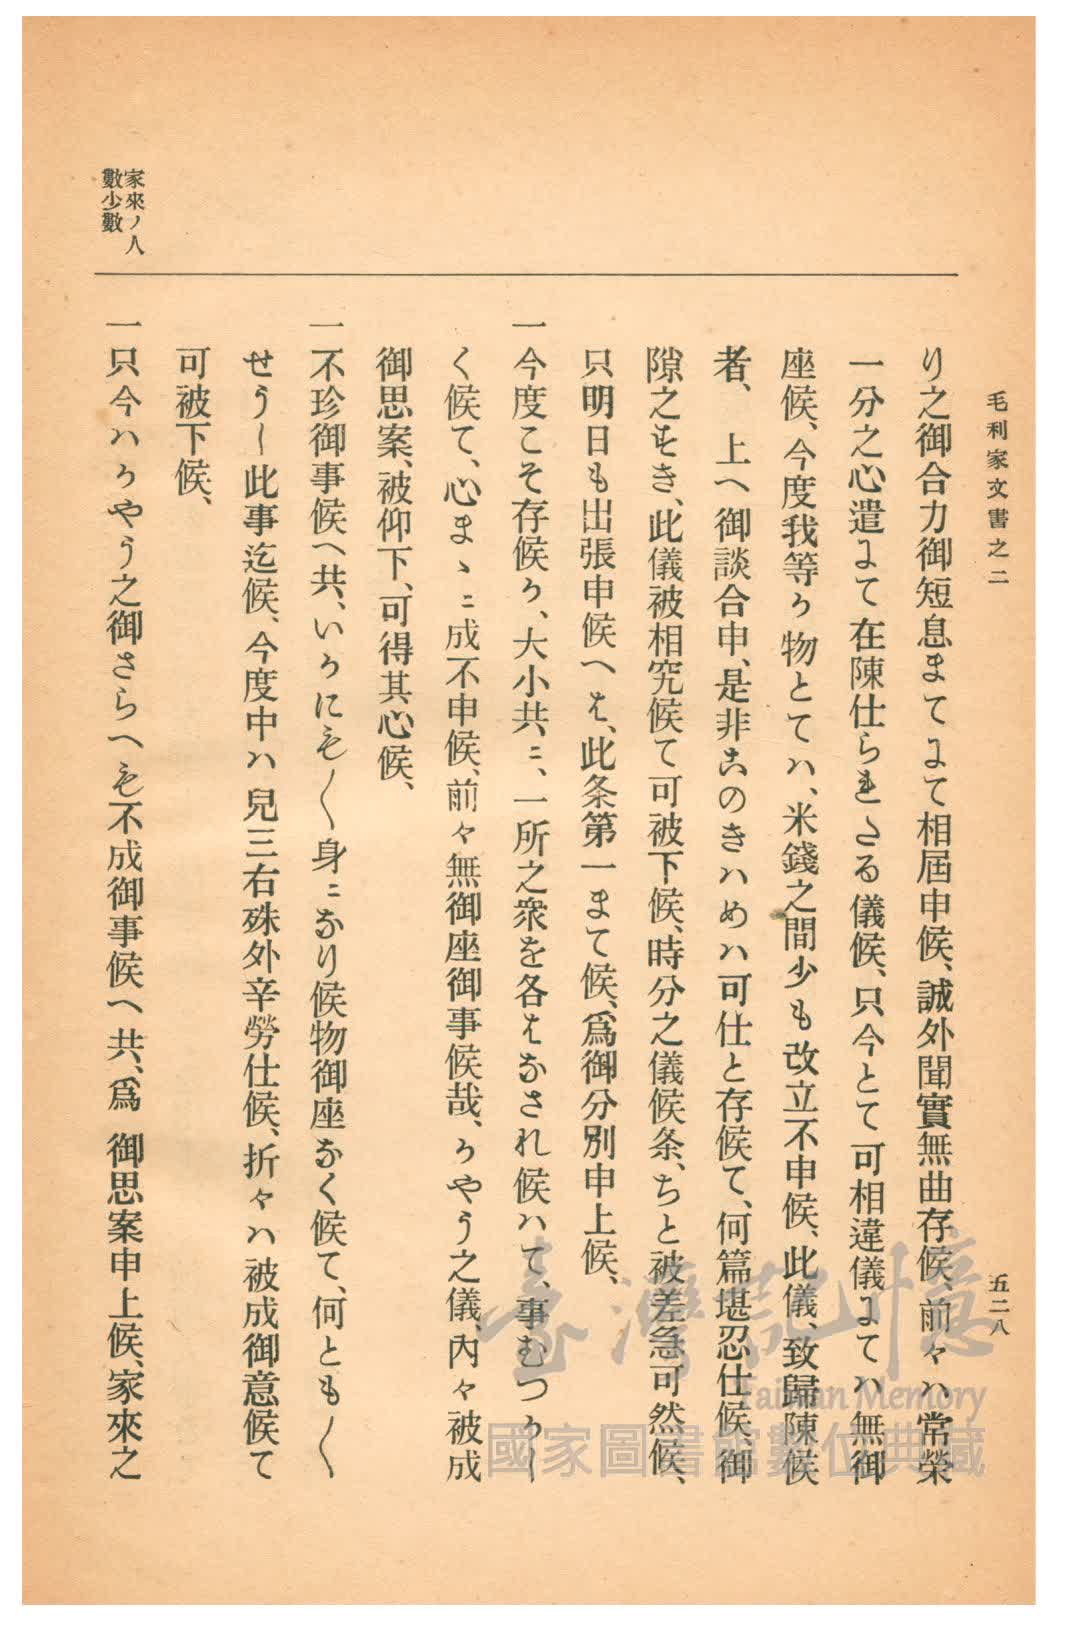 毛利家文書之二
五二八
り之御合力御短息まてにて相屆申候、誠外聞實無曲存候、前々ハ常榮
一分之心遣にて在陳仕られたる儀候、只今とて可相違儀にてハ無御
座候、今度我等か物とてハ、米錢之間少も改立不申候、此儀、致歸陳候
者、　上へ御談合申、是非共のきハめハ可仕と存候て、何篇堪忍仕候、御
隙之すき、此儀被相究候て可被下候、時分之儀候条、ちと被差急可然候、
只明日も出張申候へは、此条第一まて候、爲御分別申上候、
一今度こそ存候か、大小共ニ、一所之衆を各はなされ候ハて、事むつかし
く候て、心まゝニ成不申候、前々無御座御事候哉、かやう之儀、内々被成
御思案、被仰下、可得其心候、
一不珍御事候へ共、いかにも〱身ニなり候物御座なく候て、何とも〱
せうし此事迄候、今度中ハ兒三右殊外辛勞仕候、折々ハ被成御意候て
可被下候、
家來ノ人
數少數
一只今ハかやう之御さらへも不成御事候へ共、爲　御思案申上候、家來之
臺灣記憶
Taiwan Memory
國家圖書館數位典藏